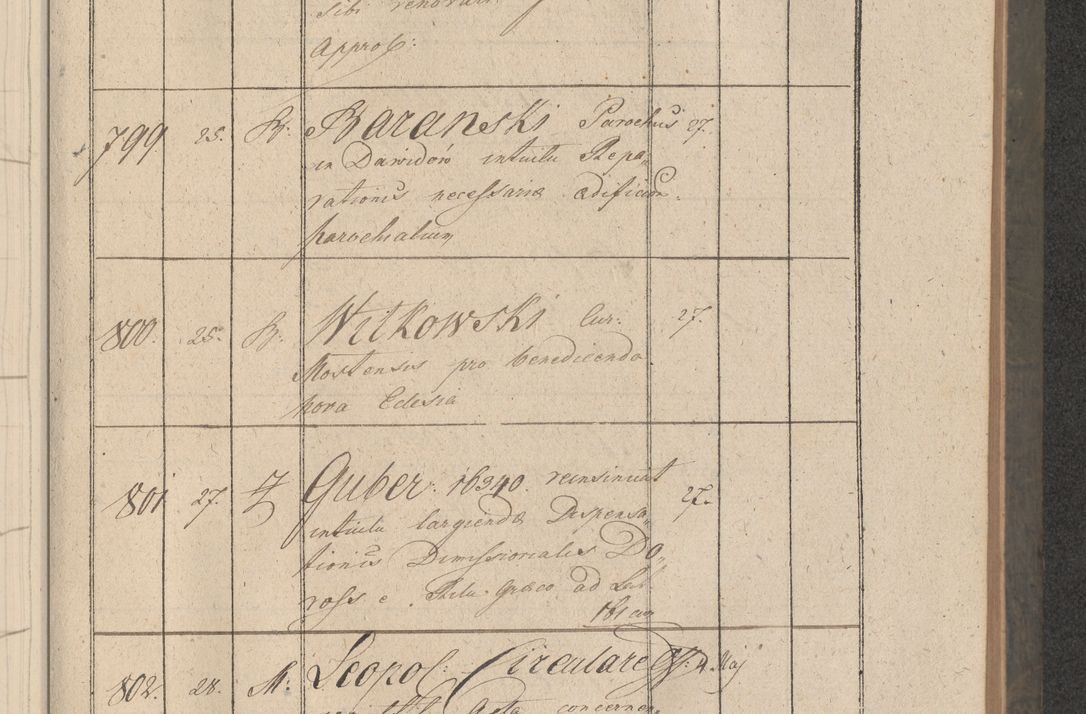 sibi
Approb:
799 25. B: Baranski Parochus 27.
in Dawidow intuitu Repa„
rationis necessariae aedificior.
parochialium
800. 25. B: Witkowski Cur: 27.
Mostensis pro benedicenda
nova Eclesia
801 27. Guber. 16940. reinsinuat 27.
intuitu largiendae Dispensa„
tionis Dimissorialis Do„
ross e Ritu Graeco ad Lat
802. 28. M: Leopol: Circulare 4 Maj
Acta concernen